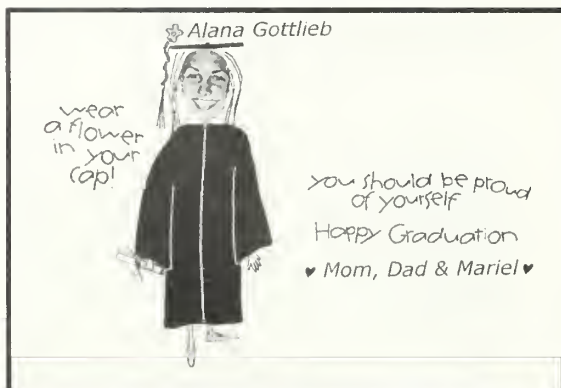 Alana Gottlieb
wear
a flower
in your
cap!
you should be proud
of yourself
Happy Graduation
♥ Mom, Dad & Mariel ♥